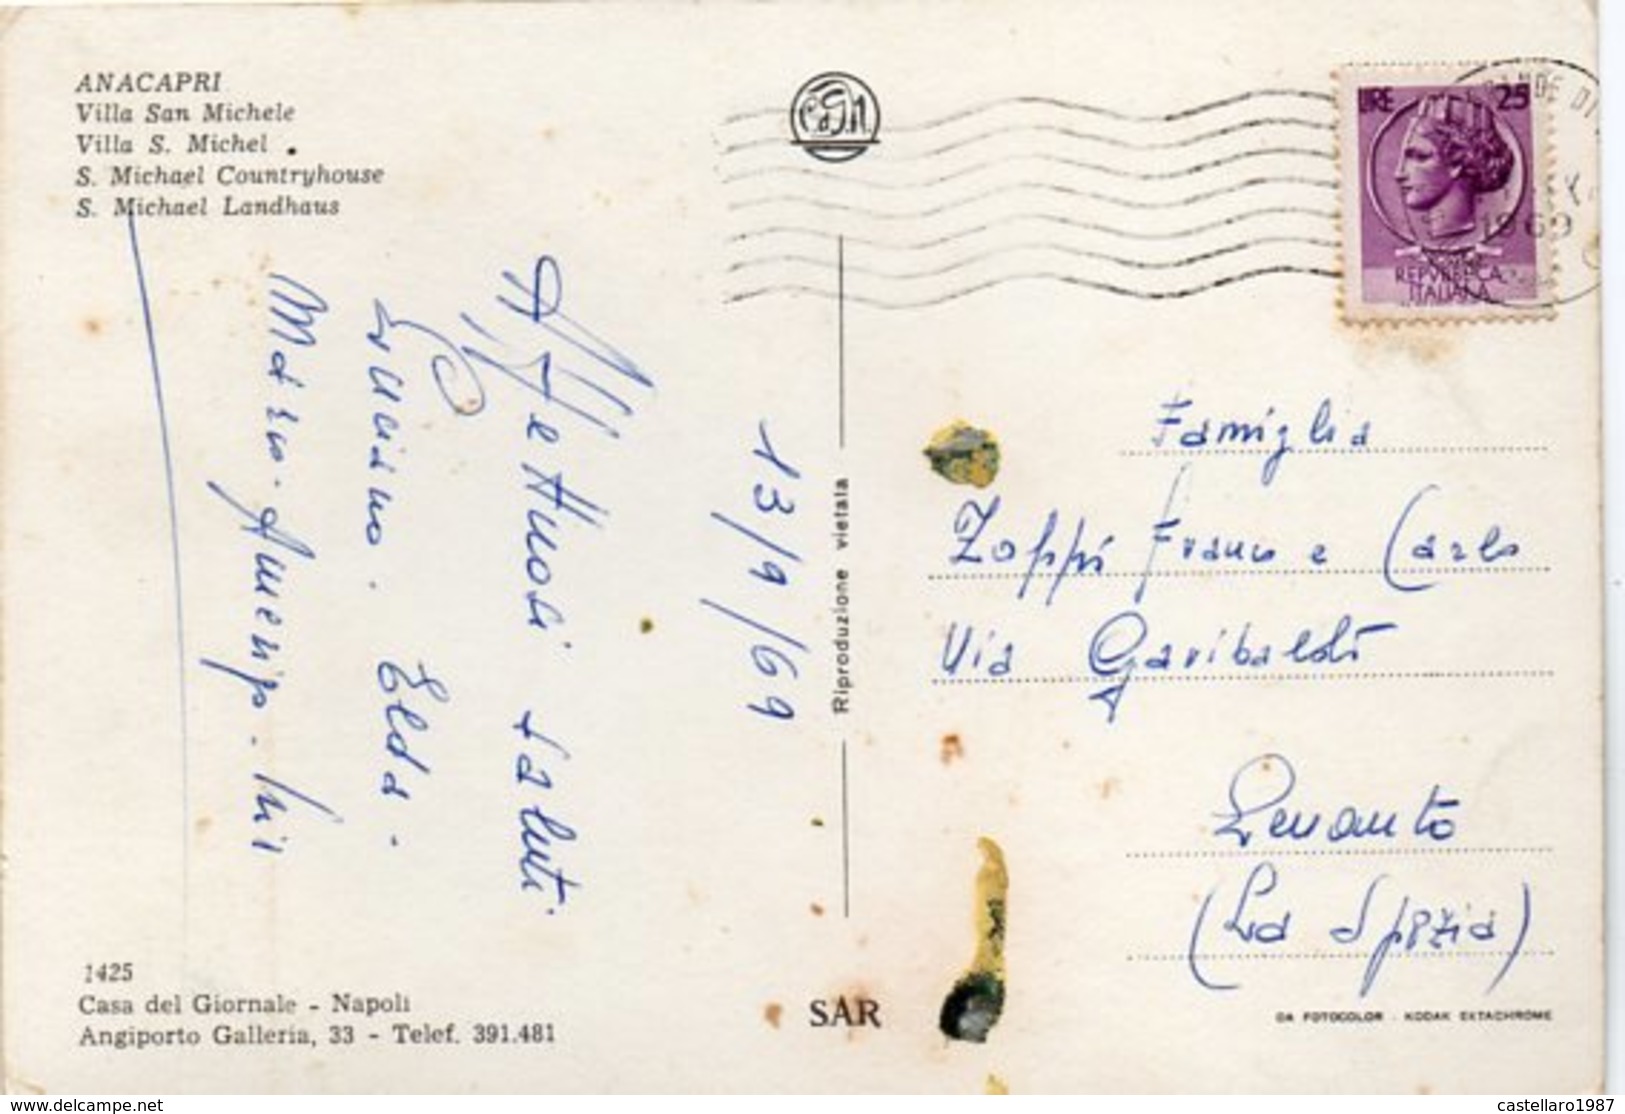 ANACAPRI
Villa San Michele
Villa S. Michel
S. Michael Countryhouse
S. Michael Landhaus
LIRE 25
1969
REPVBBLICA
ITALIANA
13/9/69
Affettuosi saluti
Luciano. Elda.
Famiglia
Zoppi Franco e Carlo
Via Garibaldi
Levanto
(La Spezia)
Riproduzione vietata
1425
Casa del Giornale - Napoli
Angiporto Galleria, 33 - Telef. 391.481
SAR
DA FOTOCOLOR - KODAK EKTACHROME
www.delcampe.net
castellaro1987